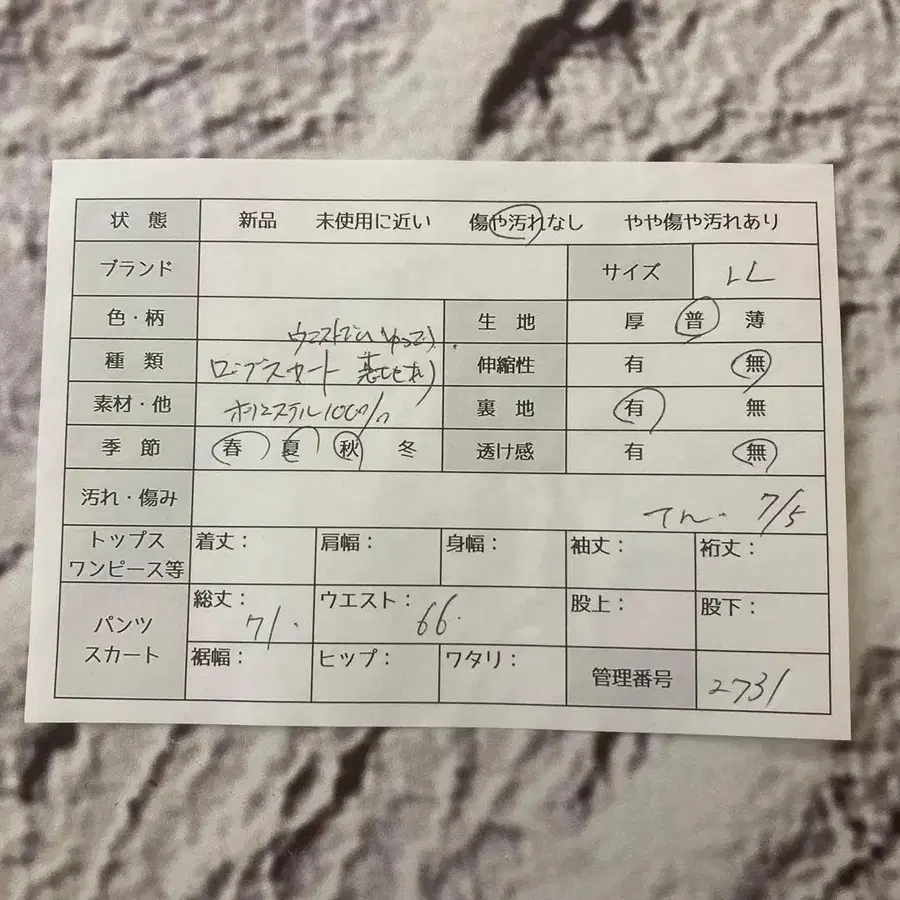 状 態 新品 未使用に近い 傷や汚れなし やや傷や汚れあり
ブランド サイズ LL
色・柄 生 地 厚 普 薄
種 類 ロングスカート 伸縮性 有 無
素材・他 ポリエステル100% 裏 地 有 無
季 節 春 夏 秋 冬 透け感 有 無
汚れ・傷み 7/5
トップス ワンピース等 着丈: 肩幅: 身幅: 袖丈: 裄丈:
パンツ スカート 総丈: 71. ウエスト: 66. 股上: 股下:
裾幅: ヒップ: ワタリ: 管理番号 2731